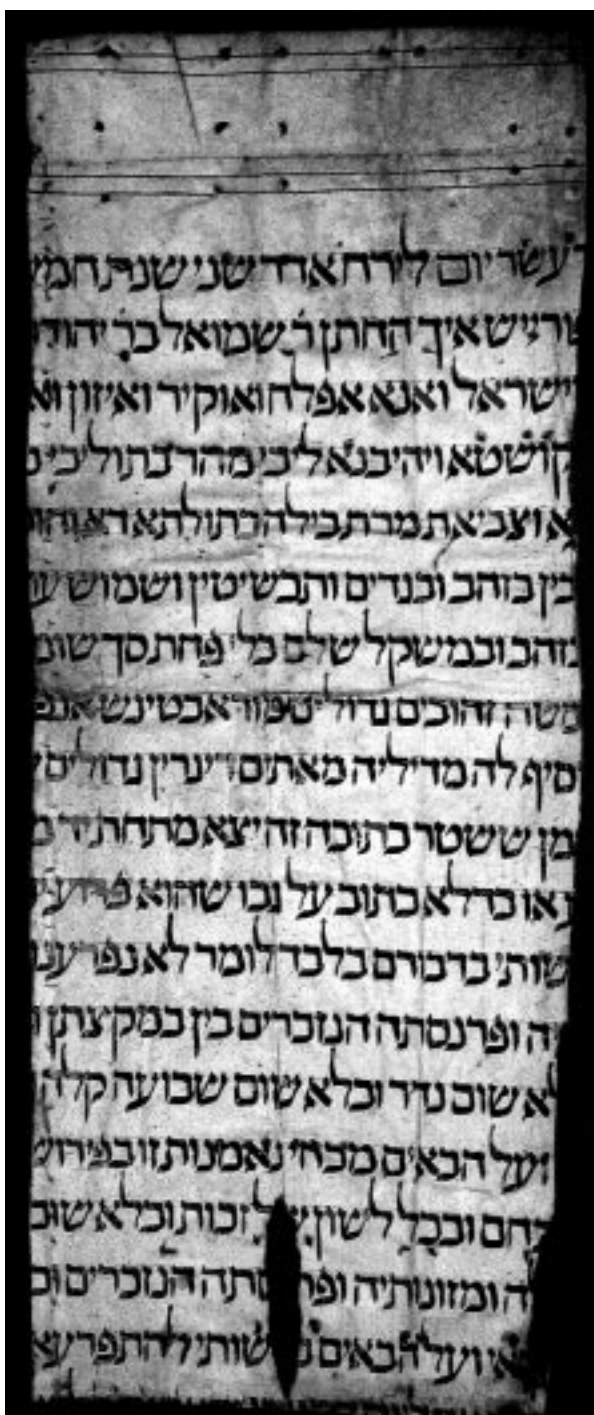 עשר יום לירח אדר שני שנת חמש
איך החתן ר שמואל בר יהודה
ישראל ואנא אפלח ואוקיר ואיזון
קושטא ויהיבנא ליכי מהר בתוליכי
וצביאת מרת בילה בתולתא דא והות
בין בזהב ובגדים ותכשיטין ושמוש
בזהב ובמשקל שלם בלי פחת סך שום
זהובים גדולים
לה מדיליה מאתים דינרין גדולים
זמן ששטר כתובה זה יצא מתחת יד
או בדלא כתוב על גבו שהוא פרוע
בדבורם בלבד לומר לא נפרענו
ופרנסתה הנזכרים בין במקצתן
לא שום נדר ובלא שום שבועה קלה
ועל הבאים מכחי נאמנות זו בפירוש
ובכל לשון של זכות ובלא שום
ומזונותיה הנזכרים
ועל הבאים להתפרע